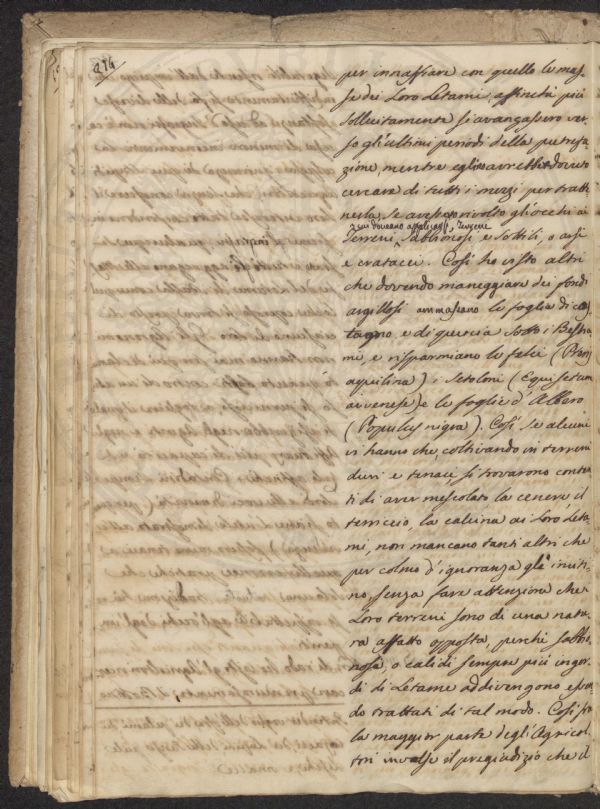 274
per innaffiare con quello le mas-
se dei Loro Letami, affinché più
sollecitamente si avanzassero ver-
so gl'ultimi periodi della putrefa-
zione, mentre eglino avrebber dovuto
cercare di tutti i mezzi per tratte-
nerla, se avessero rivolto gl'occhi ai
cui doveano applicarsi,
Terreni, Sabbionosi, e Sottili, o asi
e cratacei. Così ho visto altri
che dovendo maneggiare dei fondi
argillosi ammassano le foglie di cas-
tagno, e di quercia sotto i Bestia-
mi, e risparmiano le felci (Pteris
aquilina) i Setoloni (Equisetum
arvense) e le foglie d'Albero
(Populus nigra). Così se alcuni
vi hanno che, coltivando in terreni
duri e tenaci, si trovarono conten-
ti di aver mescolato la cenere, il
terriccio, la calcina ai Loro Leta-
mi, non mancano tanti altri che
per colmo d'ignoranza gl'imita-
no, senza fare attenzione che i
Loro terreni sono di una natu-
ra affatto opposta, perché sabbio-
nosa, o calidi sempre più ingor-
di di Letame addivengono essen-
do trattati di tal modo. Così
la maggior parte degl'Agricol-
tori invalse il pregiudizio che il